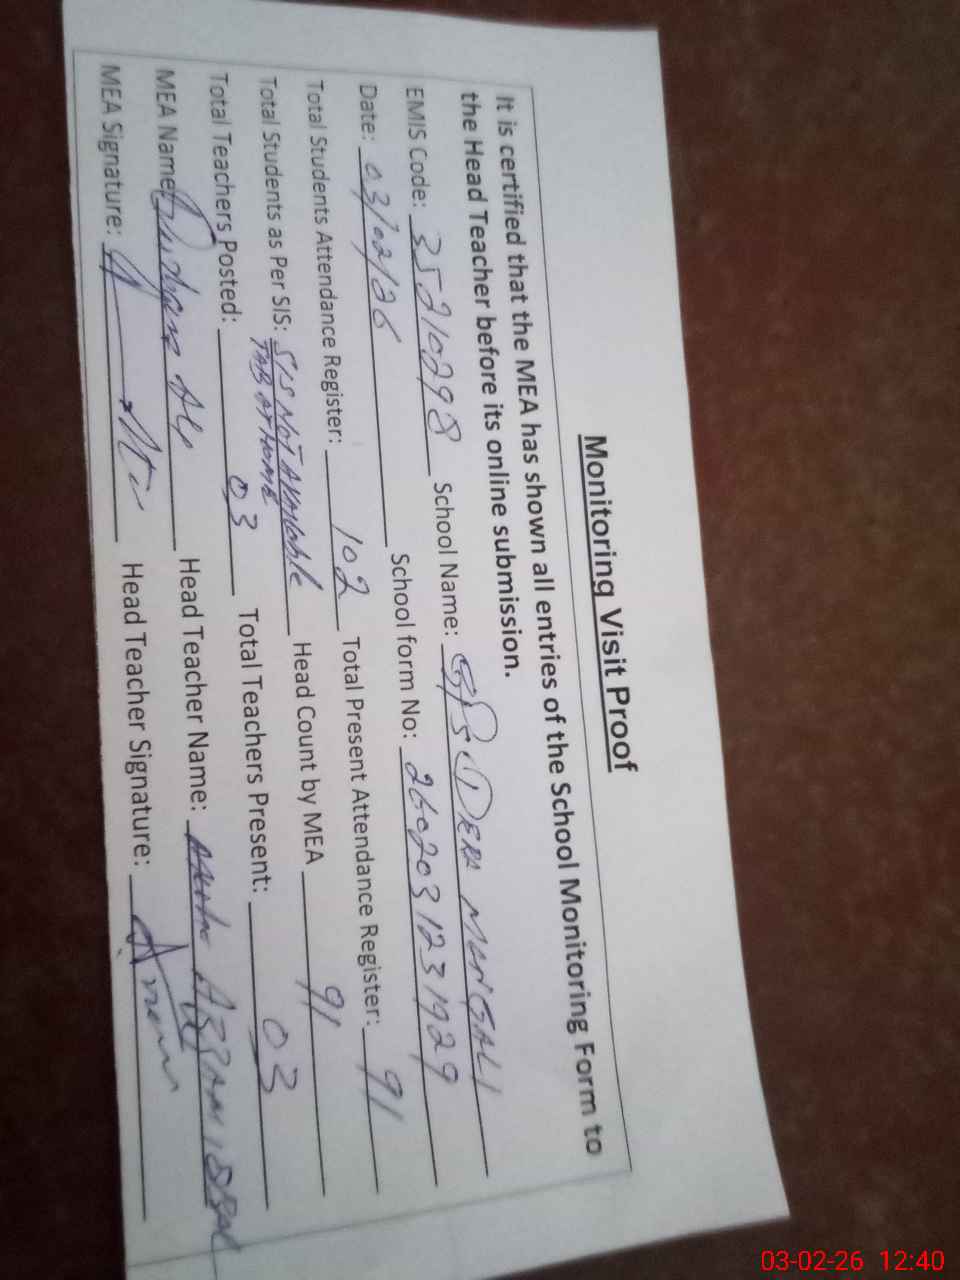 Monitoring Visit Proof
It is certified that the MEA has shown all entries of the School Monitoring Form to
the Head Teacher before its online submission.
EMIS Code: 35210298 School Name: GPS DERA MUNGALI
Date: 03/02/26 School form No: 2602031231929
Total Students Attendance Register: 102 Total Present Attendance Register: 91
Total Students as Per SIS: SIS NOT AVAILABLE Head Count by MEA 91
TAB AT HOME
Total Teachers Posted: 03 Total Teachers Present: 03
MEA Name: Ali Head Teacher Name:
MEA Signature: Head Teacher Signature:
03-02-26 12:40